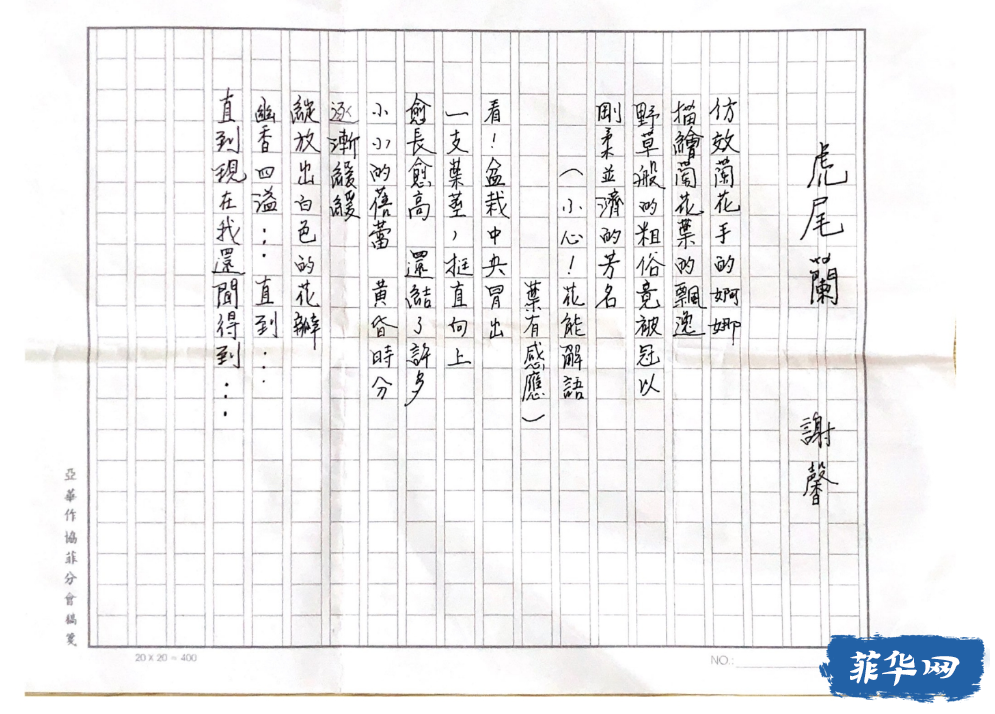 虎尾蘭　謝馨
仿效蘭花手的婀娜
描繪蘭花葉的飄逸
野草般的粗俗竟被冠以
剛柔並濟的芳名
（小心！花能解語
葉有感應）
看！盆栽中央冒出
一支葉莖，挺直向上
愈長愈高　還結了許多
小小的蓓蕾　黃昏時分
逐漸緩緩
綻放出白色的花瓣
幽香四溢⋯⋯直到⋯⋯
直到現在我還聞得到⋯⋯
亞華作協菲分會稿箋
20 X 20 = 400
NO.:
菲华网